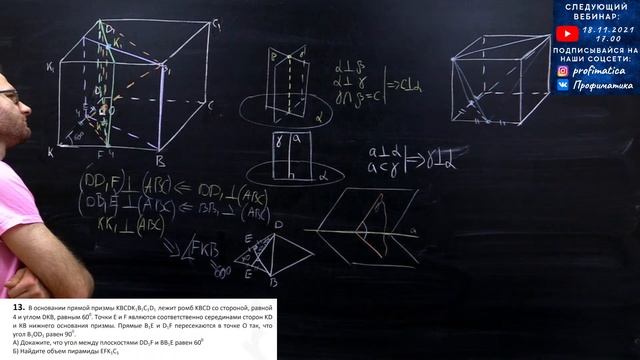 СЛЕДУЮЩИЙ
ВЕБИНАР:
18.11.2021
17.00
ПОДПИСЫВАЙСЯ НА
НАШИ СОЦСЕТИ:
profimatica
Профиматика
D₁
C₁
K₁
K₁
B₁
C
K
F
B
α
α⊥β
α⊥γ
γ∩β=c
⇒c⊥α
γ
a
α
a⊥α
a⊂γ
⇒γ⊥α
a
(DD₁F)⊥(ABC)⇐DD₁⊥(ABC)
(BB₁E)⊥(ABC)⇐BB₁⊥(ABC)
KK₁⊥(ABC)
∠FKB
60°
D
E
E
B
13. В основании прямой призмы KBCDK₁B₁C₁D₁ лежит ромб KBCD со стороной, равной
4 и углом DKB, равным 60⁰. Точки E и F являются соответственно серединами сторон KD
и KB нижнего основания призмы. Прямые B₁E и D₁F пересекаются в точке O так, что
угол B₁OD₁ равен 90⁰.
А) Докажите, что угол между плоскостями DD₁F и BB₁E равен 60⁰
Б) Найдите объем пирамиды EFK₁C₁